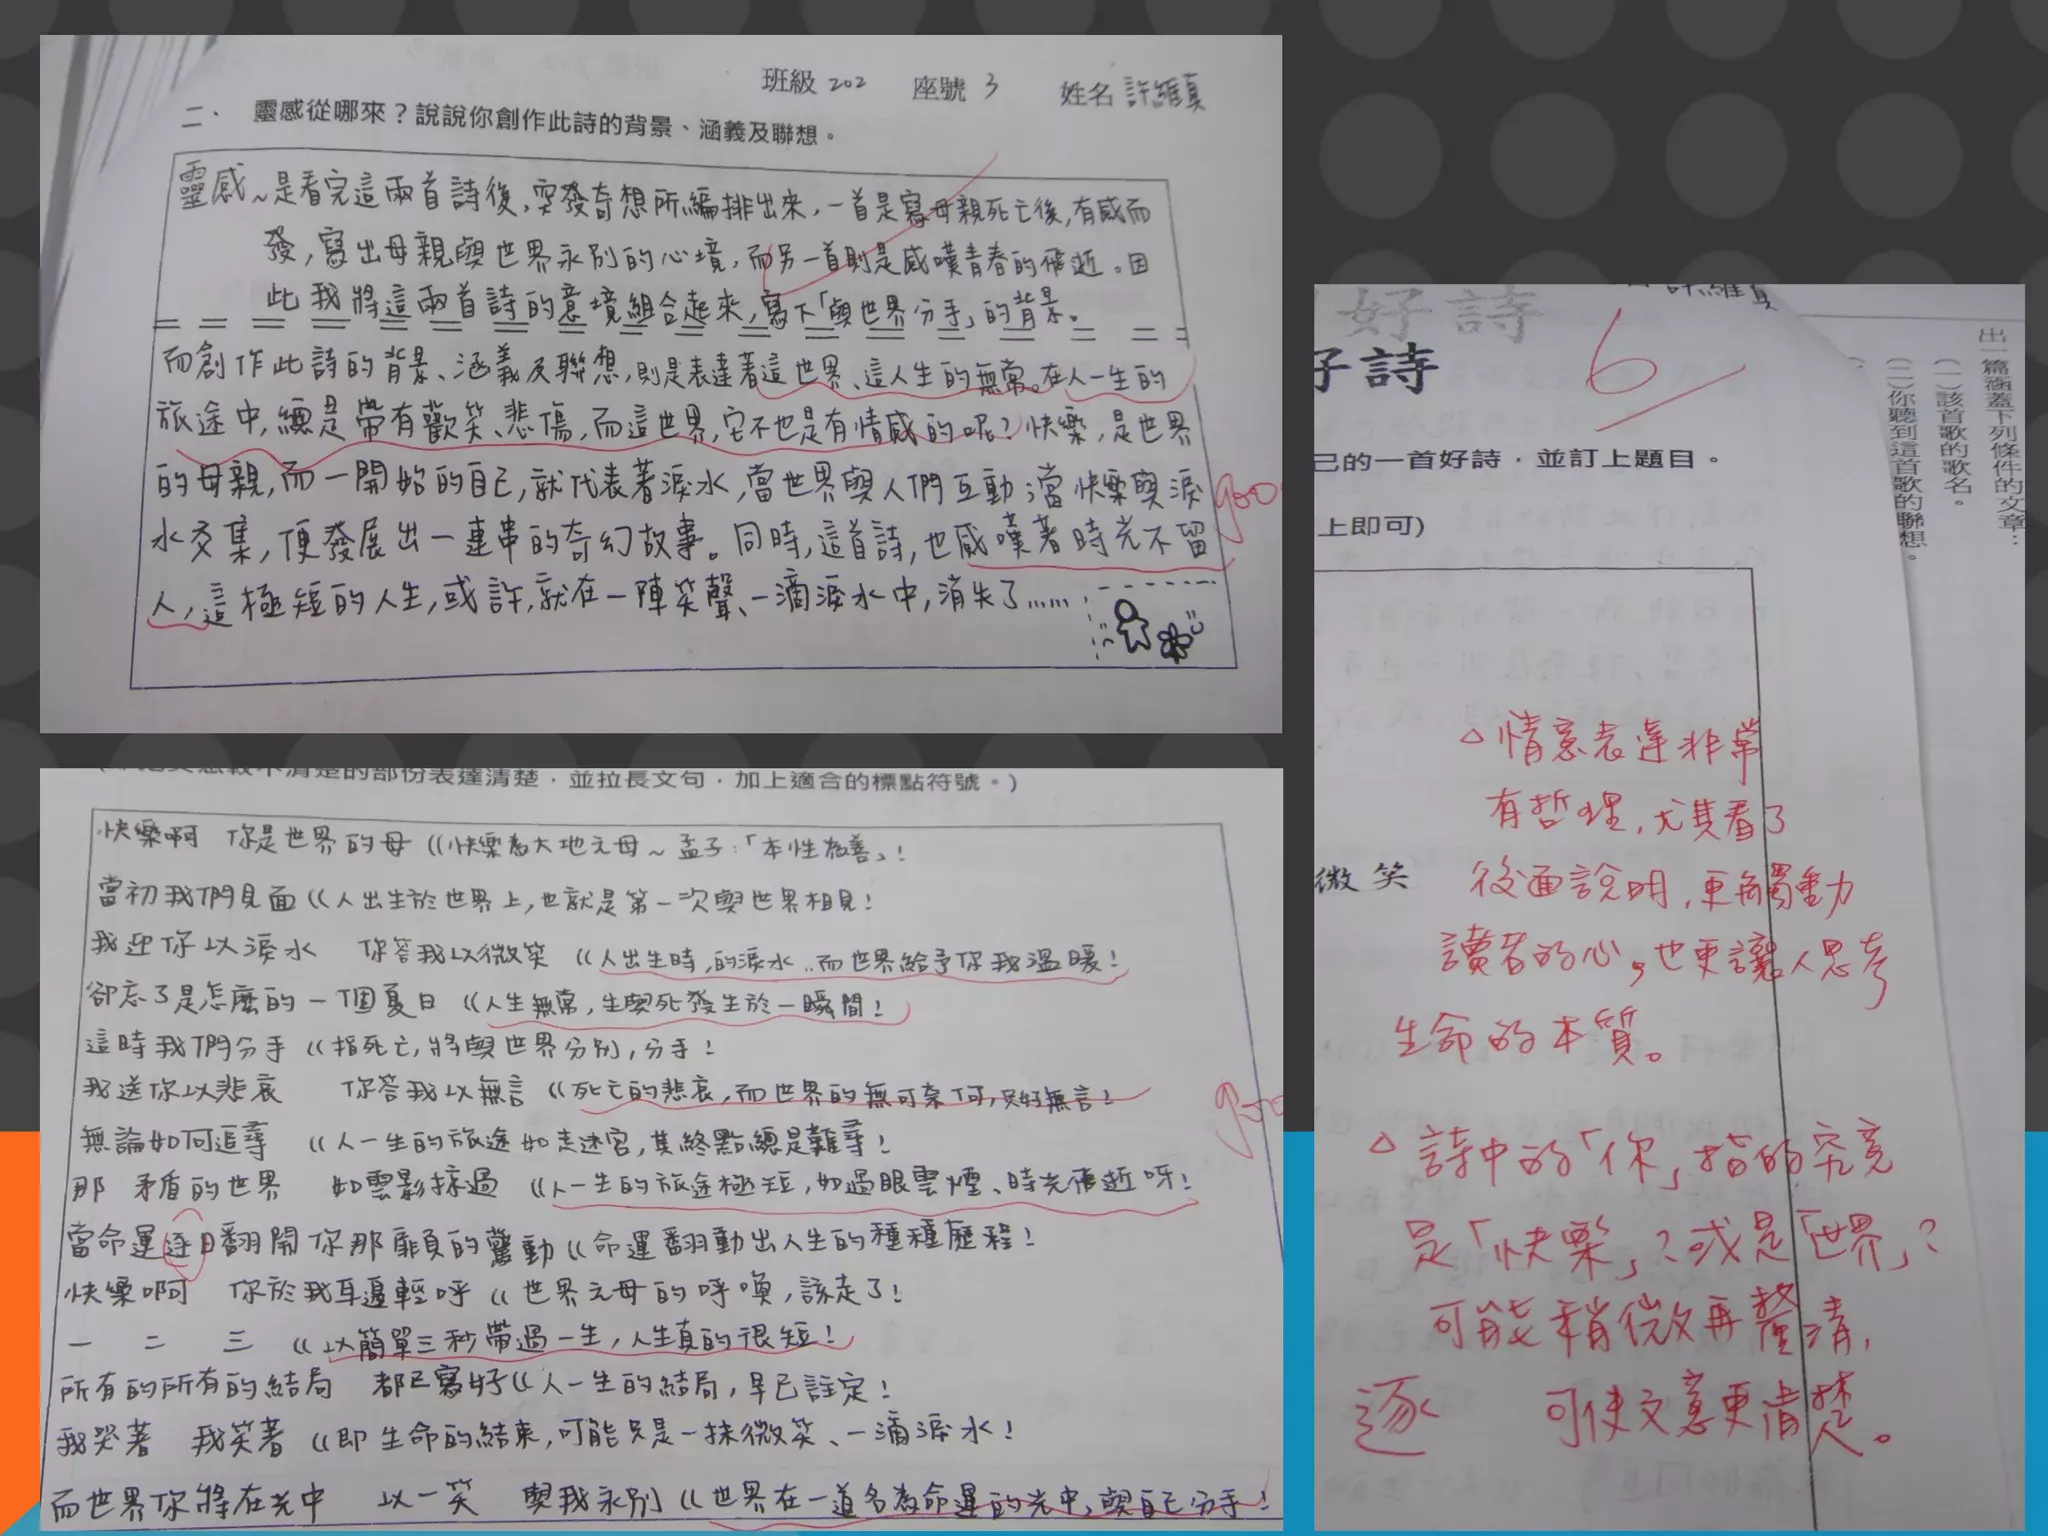 班級 202 座號 3 姓名 許維真
二、 靈感從哪來？說說你創作此詩的背景、涵義及聯想。
靈感～是看完這兩首詩後，突發奇想所編排出來，一首是寫母親死亡後，有感而
發，寫出母親與世界永別的心境，而另一首則是感嘆青春的飛逝。因
此我將這兩首詩的意境組合起來，寫下「與世界分手」的背景。
而創作此詩的背景、涵義及聯想，則是表達著這世界、這人生的無常。在人一生的
旅途中，總是帶有歡笑、悲傷，而這世界，它不也是有情感的呢？快樂，是世界
的母親，而一開始的自己，就代表著淚水，當世界與人們互動；當快樂與淚
水交集，便發展出一連串的奇幻故事。同時，這首詩，也感嘆著時光不留
人，這極短的人生，或許，就在一陣笑聲、一滴淚水中，消失了……
goo
不清楚的部份表達清楚，並拉長文句，加上適合的標點符號。)
快樂啊 你是世界的母 《快樂為大地元母～孟子：「本性為善」！
當初我們見面《人出生於世界上，也就是第一次與世界相見！
我迎你以淚水 你答我以微笑《人出生時，的淚水..而世界給予你我溫暖！
卻忘了是怎麼的一個夏日《人生無常，生與死發生於一瞬間！
這時我們分手《指死亡，將與世界分別，分手！
我送你以悲哀 你答我以無言《死亡的悲哀，而世界的無可奈何，只好無言！
無論如何追尋 《人一生的旅途如走迷宮，其終點總是難尋！
那 矛盾的世界 如雲影掠過 《人一生的旅途極短，如過眼雲煙、時光飛逝呀！
當命運逐日翻開你那扉頁的驚動《命運翻動出人生的種種歷程！
快樂啊 你於我耳邊輕呼《世界元母的呼喚，該走了！
一 二 三 《以簡單三秒帶過一生，人生真的很短！
所有的所有的結局 都已寫好《人一生的結局，早已註定！
我哭著 我笑著《即生命的結束，可能只是一抹微笑、一滴淚水！
而世界你將在光中 以一笑 與我永別《世界在一道名為命運的光中，與自己分手！
goo
許維真
好詩
好詩
6
己的一首好詩，並訂上題目。
上即可)
微笑
△情意表達非常
有哲理，尤其看了
後面說明，更角蜀動
讀者的心，也更讓人思考
生命的本質。
△詩中的「你」指的究竟
是「快樂」？或是「世界」？
可能稍微再釐清，
可使文意更清楚。
逐
出一篇涵蓋下列條件的文章：
(一)該首歌的歌名。
(二)你聽到這首歌的聯想。